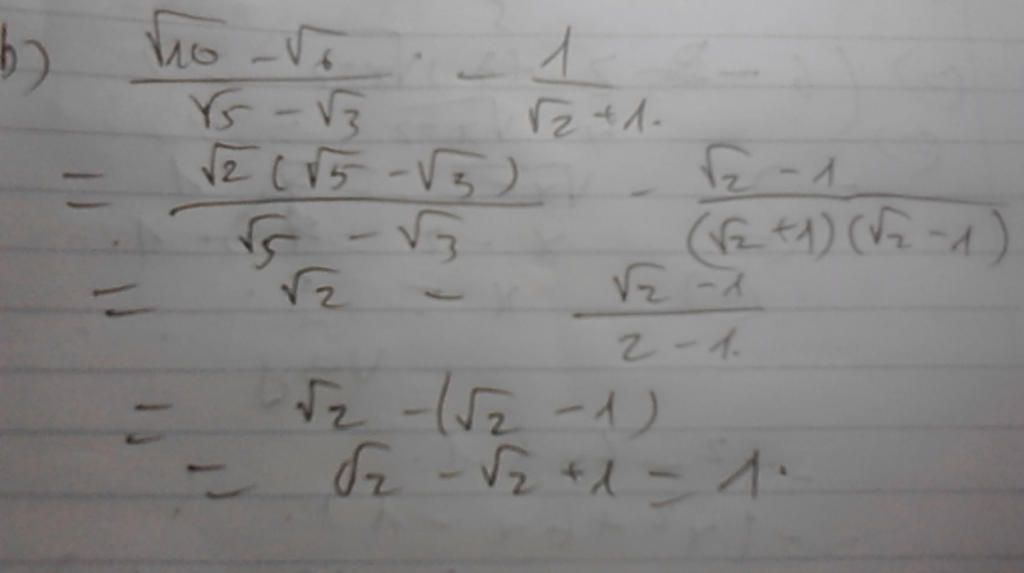 b) (√10 - √6)/(√5 - √3) - 1/(√2 + 1).
= (√2 (√5 - √3))/(√5 - √3) - (√2 - 1)/((√2 + 1)(√2 - 1))
= √2 - (√2 - 1)/(2 - 1).
= √2 - (√2 - 1)
= √2 - √2 + 1 = 1.